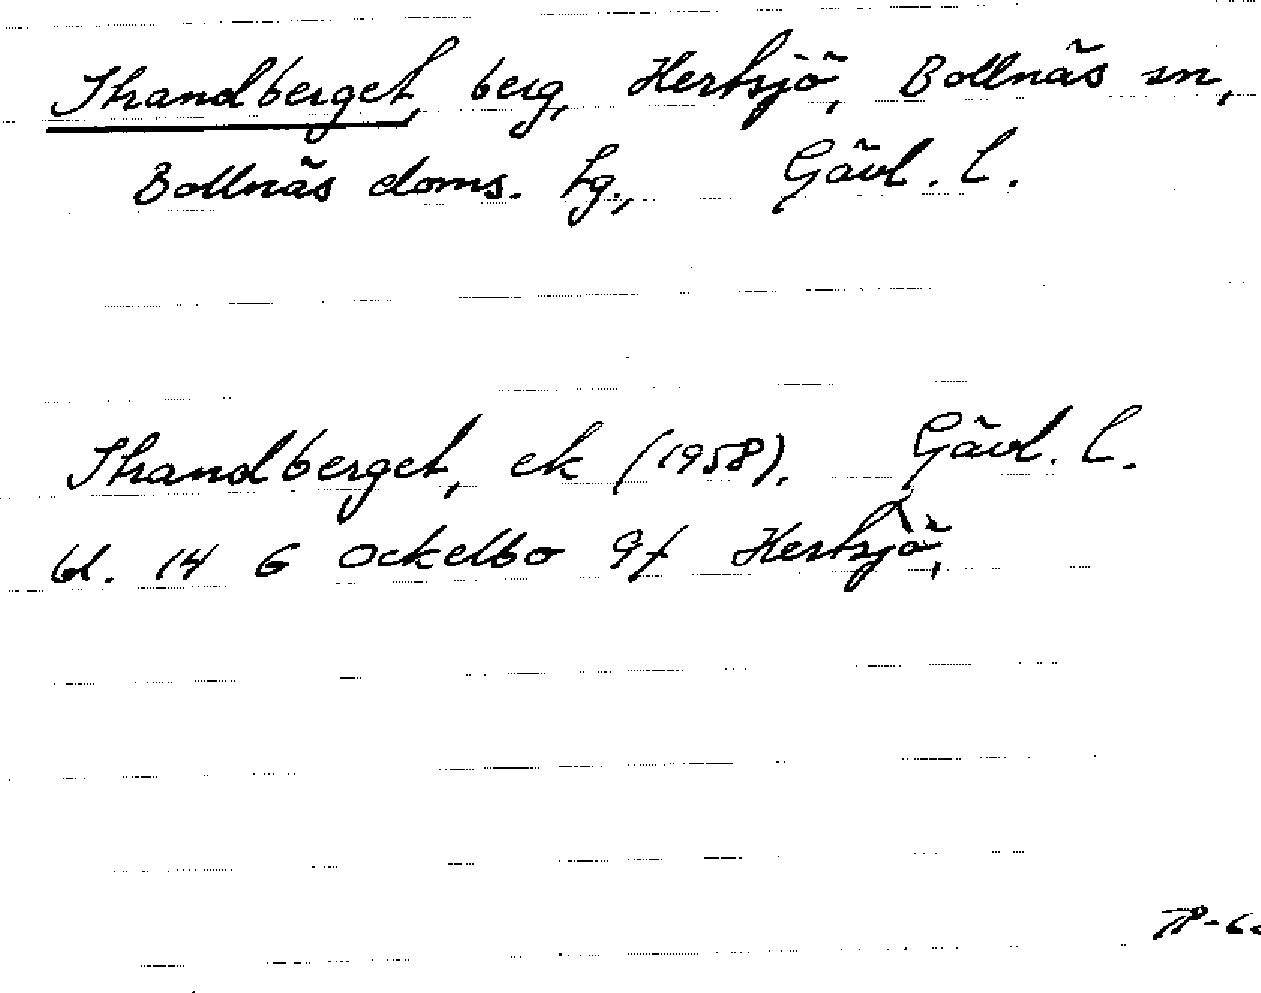 Strandberget, berg, Hertsjö, Bollnäs sn,
Bollnäs doms. hg., Gävl. l.
Strandberget, ek (1958). Gävl. l.
bl. 14 G Ockelbo 9f Hertsjö,